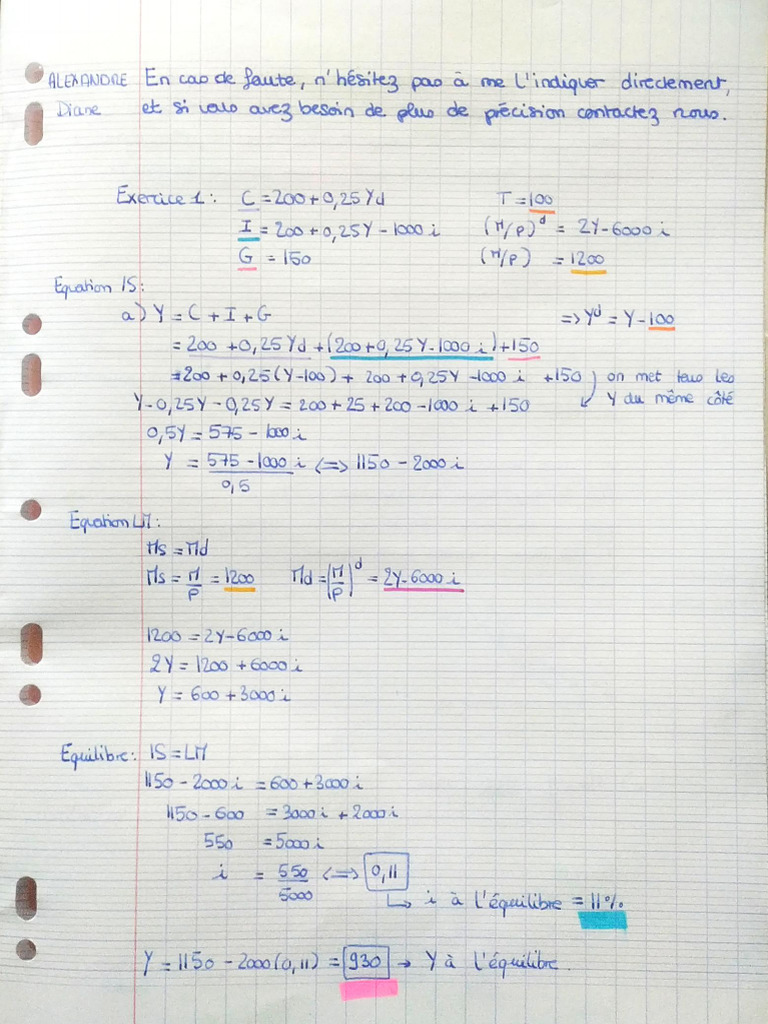 ALEXANDRE En cas de faute, n'hésitez pas à me l'indiquer directement,
Diane et si vous avez besoin de plus de précision contactez nous.
Exercice 1: C = 200 + 0,25 Yd T = 100
I = 200 + 0,25Y - 1000 i (M/P)^d = 2Y - 6000 i
G = 150 (M/P) = 1200
Equation IS:
a) Y = C + I + G => Y^d = Y - 100
= 200 + 0,25 Yd + (200 + 0,25Y - 1000 i) + 150
= 200 + 0,25(Y-100) + 200 + 0,25Y - 1000 i + 150 ) on met tous les
Y - 0,25Y - 0,25Y = 200 + 25 + 200 - 1000 i + 150 Y du même côté
0,5Y = 575 - 1000 i
Y = 575 - 1000 i <=> 1150 - 2000 i
0,5
Equation LM:
Ms = Md
Ms = M/P = 1200 Md = (M/P)^d = 2Y - 6000 i
1200 = 2Y - 6000 i
2Y = 1200 + 6000 i
Y = 600 + 3000 i
Equilibre: IS = LM
1150 - 2000 i = 600 + 3000 i
1150 - 600 = 3000 i + 2000 i
550 = 5000 i
i = 550/5000 <=> 0,11
↳ i à l'équilibre = 11%
Y = 1150 - 2000 (0,11) = 930 → Y à l'équilibre.